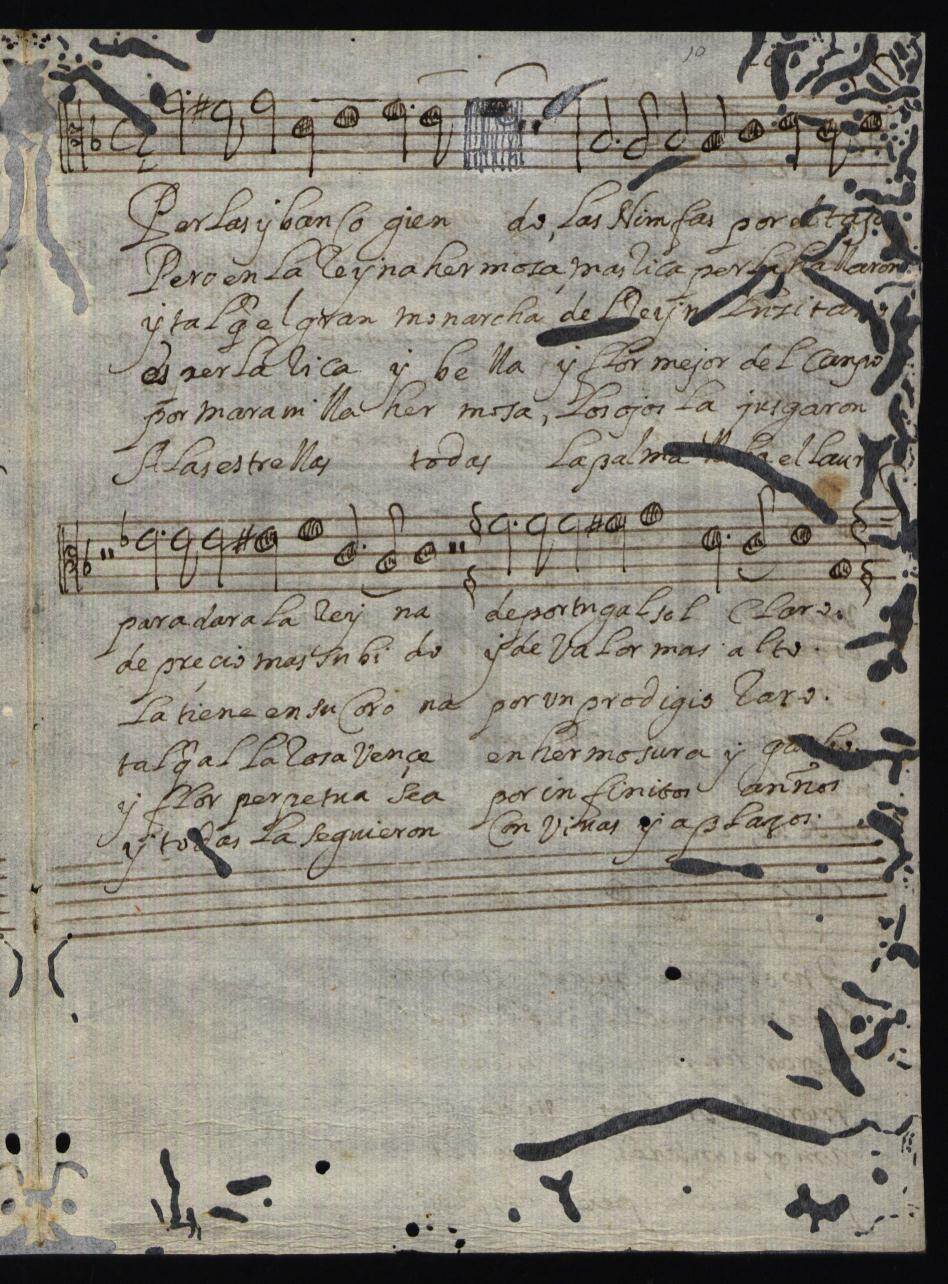 10
Perlas yban cogien do, las Nimfas por el tajo
Pero en la Reyna hermosa, mas rica perla hallaron
y tal q̃ el gran monarcha del Reyn Luzitano
es perla rica y be lla y flor mejor del Campo
por maravi lla her mosa, los ojos la jusgaron
A las estrellas todas la palma el laur
para dar a la Rey na de portugal sol Claro.
de precio mas subi do y de valor mas alto.
La tiene en su Coro na por un prodigio Raro.
tal q̃ al la Rosa vençe en hermosura y
y flor perpetua sea por infinitos annos
y todas la seguieron Con vivas y aplazos.